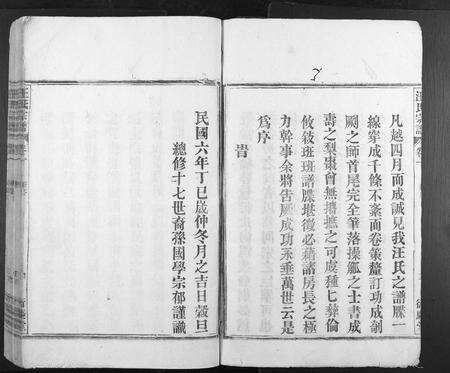 汪氏家譜 卷一
凡越四月而成誠見我汪氏之譜牒一
線穿成千條不紊而卷策釐訂功成剞
劂之師首尾完全筆落操觚之士書成
壽之梨棗會無墻摭之可虞種七彝倫
攸敍班班譜牒堪徵必藉諸房長之極
力幹事余將告厥成功永垂萬世云是
為序
旹
民國六年丁巳歲仲冬月之吉日穀旦
總修十七世裔孫國學宗郁謹識